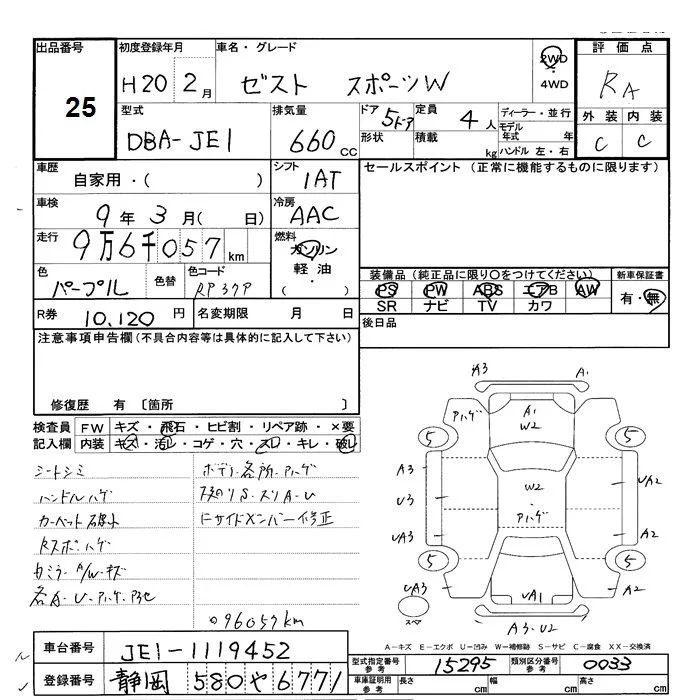 出品番号 初度登録年月 車名・グレード 評価点
25 H20 2月 ゼスト スポーツW 2WD 4WD RA
型式 排気量 ドア 5ドア 定員 4人 ディーラー・並行 外装 内装
DBA-JE1 660cc 形状 積載 kg モデル年式 年 ハンドル 左・右 C C
車歴 シフト セールスポイント (正常に機能するものに限ります)
自家用・( ) 1AT
車検 9年3月( 日) 冷房 AAC
走行 9万6千057km 燃料 ガソリン
軽油・( )
色 パープル 色替 色コード RP37P
装備品 (純正品に限り○をつけてください) 新車保証書
PS PW ABS エアB AW 有・無
SR ナビ TV カワ
R券 10,120円 名変期限 月 日 後日品
注意事項申告欄 (不具合内容等は具体的に記入して下さい)
修復歴 有 [箇所 ]
検査員記入欄 FW キズ・飛石・ヒビ割・リペア跡・×要
内装 キズ・汚レ・コゲ・穴・スレ・キレ・破レ
シートシミ ボデー各所ハゲ
ハンドルハゲ
カーペット破れ Fサイドメンバー修正
Rスポハゲ
カミラー A/Wキズ
096057km
A3 A1
ハゲ A1 W2
5 5
A3 U3 UA3 W2 ハゲ UA2 A2
5 5
UA3 UA1 A2
スペア A3・U2
A-キズ E-エクボ U-凹み W-補修跡 S-サビ C-腐食 XX-交換済
車台番号 JE1-1119452
型式指定番号 参考 15295 類別区分番号 参考 0033
登録番号 静岡 580 や 6771
車庫証明用 参考 長さ cm 幅 cm 高さ cm